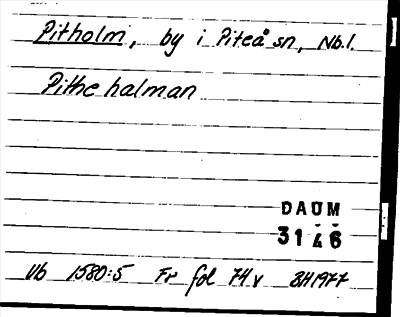 Pitholm, by i Piteå sn, Nb.l.
Pithe halman
DAUM
3146
Vb 1580:5 Fr fol 74 v BH1977